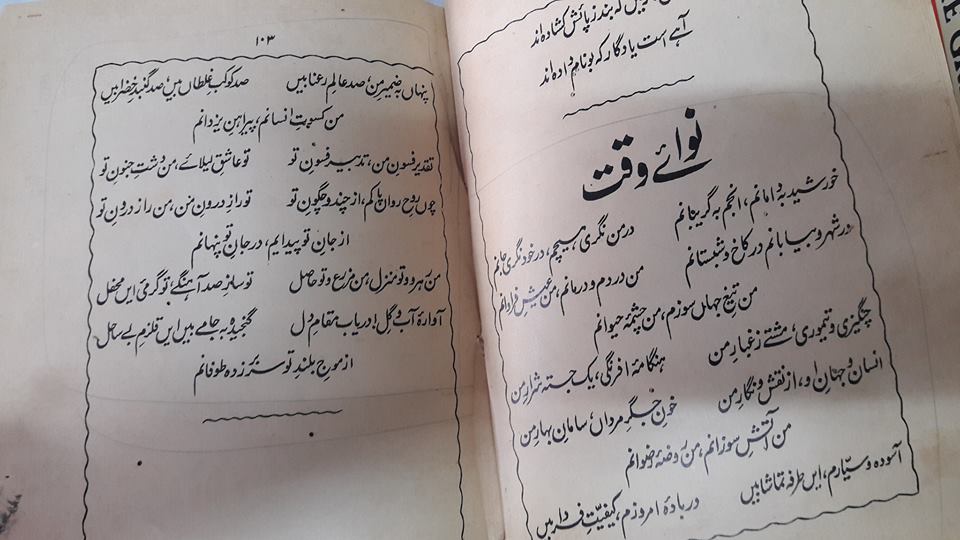 کہ بند ز پائش کشادہ اند
آہے است یادگار کہ بو نام دادہ اند
نوائے وقت
خورشید بہ دامانم، انجم بہ گریبانم
در من نگری ہیچم، در خود نگری جانم
در شہر و بیابانم در کاخ و شبستانم
من دردم و درمانم، من عیش فراوانم
من تیغ جہاں سوزم، من چشمۂ حیوانم
چنگیزی و تیموری، مشتے ز غبار من
ہنگامۂ افرنگی، یک جستہ شرار من
انسان و جہان او، از نقش و نگار من
خون جگر مرداں، سامان بہار من
من آتش سوزانم، من روضۂ رضوانم
آسودہ و سیارم، ایں طرفہ تماشا بیں
در بادۂ امروزم، کیفیت فردا بیں
۱۰۳
پنہاں بہ ضمیر من، صد عالم رعنا بیں
صد کوکب غلطاں بیں، صد گنبد خضرا بیں
من کسوت انسانم، پیراہن یزدانم
تقدیر فسون من، تدبیر فسون تو
تو عاشق لیلائے، من دشت جنون تو
چوں روح رواں پاکم، از چند و چگون تو
تو راز درون من، من راز درون تو
از جان تو پیدایم، در جان تو پنہانم
من رہرو و تو منزل، من مزرع و تو حاصل
تو ساز صد آہنگے، تو گرمئ ایں محفل
آوارۂ آب و گل! دریاب مقام دل
گنجیدہ بہ جامے بیں ایں قلزم بے ساحل
از موج بلند تو سر بر زدہ طوفانم